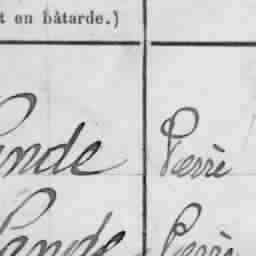 t en bâtarde.)
ande Pierre
Lande Pierre